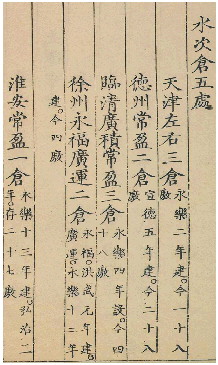 水次倉五處
天津左右三倉永樂二年建。今一十八廒
德州常盈二倉宣德五年建。今二十八廒
臨清廣積常盈三倉永樂四年設。今四十八廒
徐州永福廣運二倉永福。洪武元年建。廣運。永樂十三年
建。今四廒
淮安常盈一倉永樂十三年建。弘治二年存二十七廒